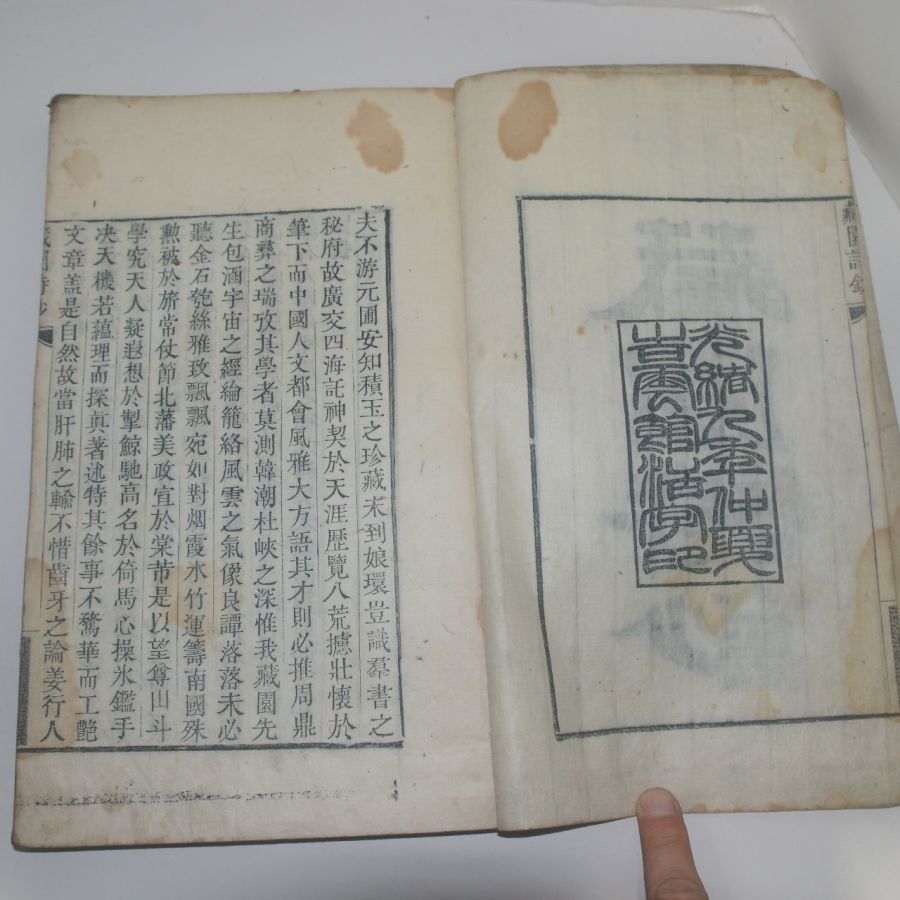 藏園詩鈔
光緖九年仲夏
吉雲館活字印
夫不游元圃安知積玉之珍藏未到娘環豈識羣書之
秘府故廣交四海託神契於天涯歷覽八荒摅壯懷於
筆下而中國人文都會風雅大方語其才則必推周鼎
商彝之瑞攷其學者莫測韓潮杜峽之深惟我藏園先
生包涵宇宙之經綸籠絡風雲之氣像良譚落落未必
聽金石匏絲雅致飄飄宛如對烟霞水竹運籌南國殊
勲被於旂常仗節北藩美政宣於棠芾是以望尊山斗
學究天人凝遐想於掣鯨馳高名於倚馬心操氷鑑手
决天機若蘊理而探真著述特其餘事不騖華而工艷
文章盖是自然故當肝肺之輸不惜齒牙之論姜行人
藏園詩鈔